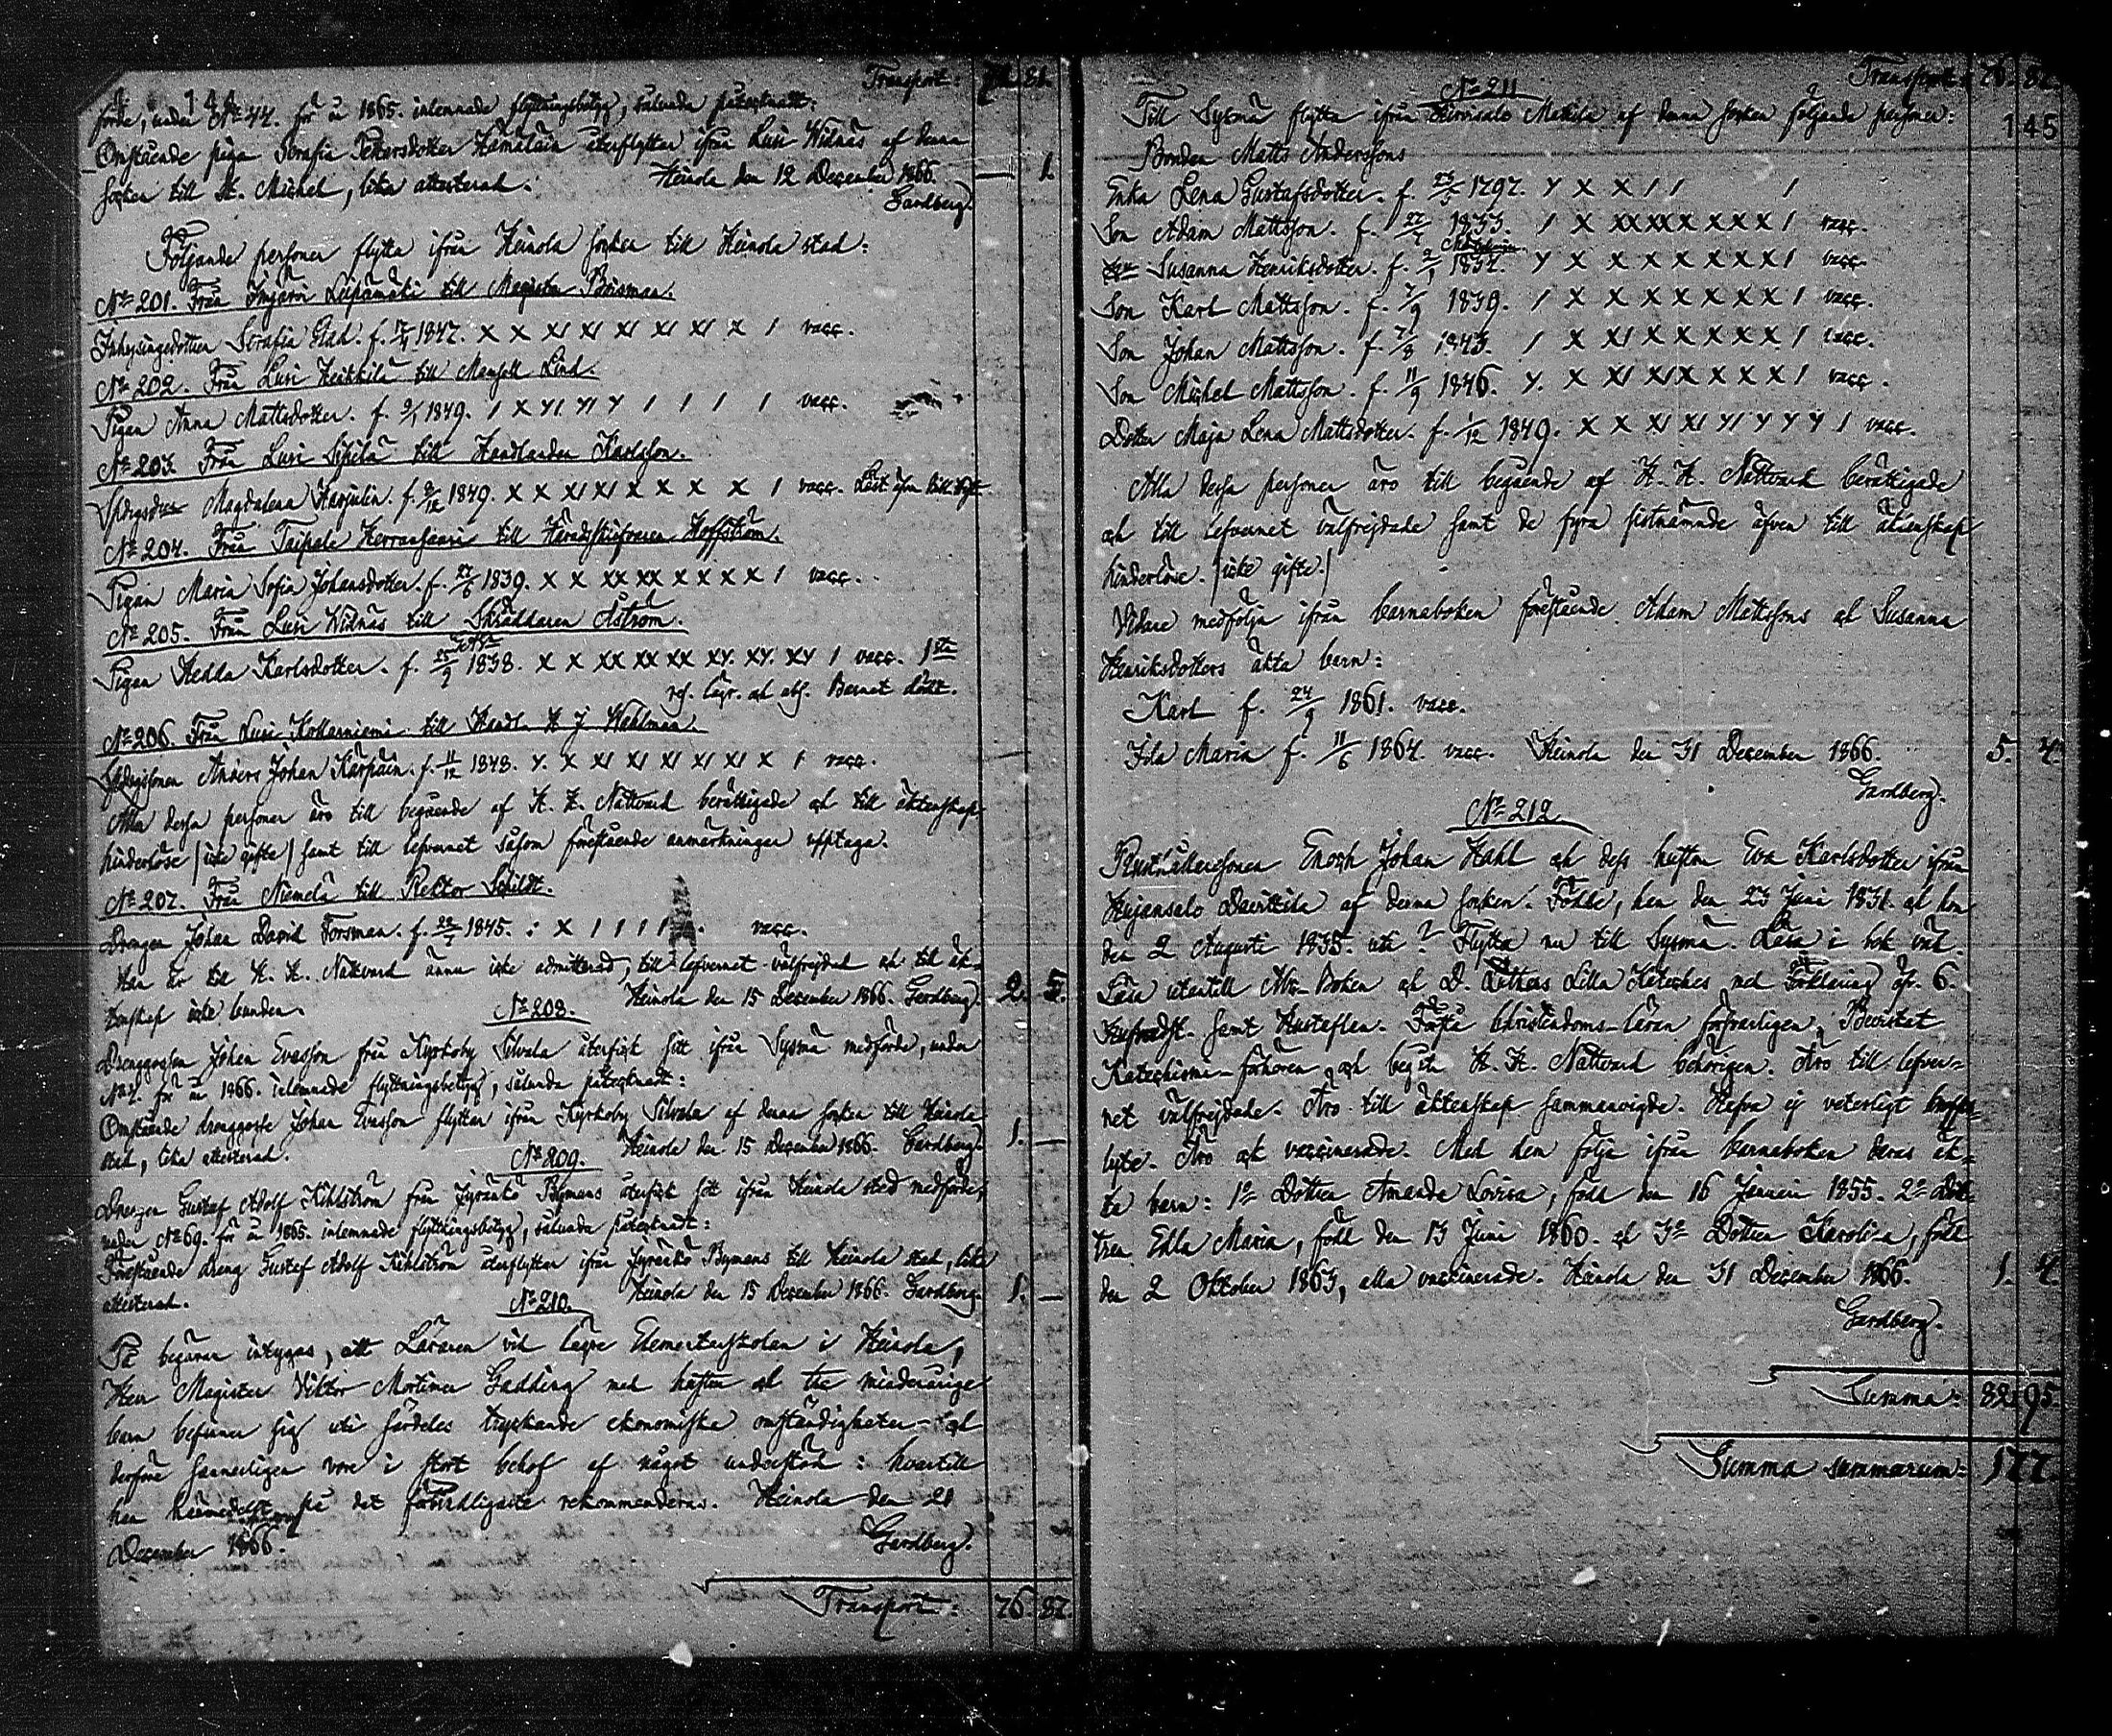 Transport: 72. 81.
144
förde, under No 44. för år 1865. inlemnade flyttningsbetyg, sålunda påtecknadt:
Omstående piga Serafia Pettersdotter Hämäläin återflyttar ifrån Lusi Widnäs af denna
socken till St. Michel, lika attesterad. Heinola den 12 December 1866. — 1.
Gardberg.
Följande personer flytta ifrån Heinola socken till Heinola stad:
No 201. Från Imjärvi Leipämäki till Magister Brisman.
Inhysingsdottren Serafia Glad. f. 1847. x x x/ x/ x/ x/ x/ x / vacc.
No 202. Från Lusi Heikkilä till Mamsell Lind.
Pigan Anna Mattsdotter. f. 9/1 1849. / x y/ y/ y / / / / vacc.
No 203. Från Lusi Sipilä till Handlanden Karlsson.
Magdalena Harjulin. f. 9/12 1849. x x x/ x/ x x x x / vacc.
No 204. Från Taipale Herransaari till Häradsskrifvaren Hoffström.
Pigan Maria Sofia Johansdotter. f. 27/6 1839. x x xx xx x x x x / vacc.
No 205. Från Lusi Widnäs till Skräddaren Åström.
Pigan Hedda Karlsdotter. f. 25/9 1838. x x xx xx xx xy. xy. xy / vacc. 1sta
res. lägr. och abs. Barnet dödt.
No 206. Från Lusi Kottarniemi till Handl. H J Wahlman.
Anders Johan Karpain. f. 11/12 1848. y. x x/ x/ x/ x/ x/ x / vacc.
Alla dessa personer äro till begående af H. H. Nattvard berättigade och till äktenskap
hinderlöse (icke gifte) samt till lefvernet såsom förestående anmärkningar upptaga.
No 207. Från Niemelä till Rektor Schildt.
Drengen Johan David Forsman. f. 22/7 1845. : x / / / / vacc.
Han är till H. H. Nattvard ännu icke admitterad, till lefvernet välfrejdad och till äk-
tenskap icke bunden. Heinola den 15 December 1866. Gardberg. 2. 5.
No 208.
Drenggossen Johan Evasson från Kyrkoby Silvala återfick sitt ifrån Sysmä medförde, under
No 2. för år 1866. inlemnade flyttningsbetyg, sålunda påtecknadt:
Omstående drenggosse Johan Evasson flyttar ifrån Kyrkoby Silvala af denna socken till Heinola
stad, lika attesterad. Heinola den 15 December 1866. Gardberg. 1. —
No 209.
Drengen Gustaf Adolf Kihlström från Jyränkö Bymans återfick sitt ifrån Heinola stad medförde,
under No 69. för år 1865. inlemnade flyttningsbetyg, sålunda påtecknadt:
Förestående dreng Gustaf Adolf Kihlström återflyttar ifrån Jyränkö Bymans till Heinola stad, lika
attesterad. Heinola den 15 December 1866. Gardberg. 1. —
No 210.
På begäran intygas, att Läraren vid lägre Elementarskolan i Heinola,
Herr Magister Viktor Mortimer Gadding med hustru och tre minderårige
barn befinner sig uti särdeles tryckande ekonomiska omständigheter och
derföre sannerligen vore i stort behof af något understöd: hvartill
han härmedelst på det förbindligaste rekommenderas. Heinola den 21
December 1866. Gardberg.
Transport: 76. 87.
Transport: 76. 87.
145
No 211.
Till Sysmä flytta ifrån Hirvisalo Mattila af denna socken följande personer:
Bonden Matts Anderssons
Enka Lena Gustafsdotter. f. 23/5 1797. y x x / / /
Son Adam Mattsson. f. 27/7 1833. / x xx xx x x x x / vacc.
Susanna Henriksdotter. f. 2/1 1837. y x x x x x x x / vacc.
Son Karl Mattsson. f. 7/9 1839. / x x x x x x x / vacc.
Son Johan Mattsson. f. 7/8 1843. / x x/ x x x x x / vacc.
Son Michel Mattsson. f. 11/9 1846. y. x x/ x/ x x x x / vacc.
Dotter Maja Lena Mattsdotter. f. 1/12 1849. x x x/ x/ y/ y y y / vacc.
Alla dessa personer äro till begående af H. H. Nattvard berättigade
och till lefvernet välfrejdade samt de fyra sistnämnde äfven till äktenskap
hinderlöse. (icke gifte.)
Vidare medfölja ifrån barnaboken förestående Adam Mattssons och Susanna
Henriksdotters äkta barn:
Karl f. 24/9 1861. vacc.
Ida Maria f. 11/6 1864. vacc. Heinola den 31 December 1866. 5. 4.
Gardberg.
No 212.
Enoch Johan Hahl och dess hustru Eva Karlsdotter ifrån
Hujansalo Davittila af denna socken. Födde, han den 23 Juni 1831. och hon
den 2 Augusti 1835. uti ? Flytta nu till Sysmä. Läsa i bok väl.
Läsa utantill Abc-Boken och D. Luthers Lilla Kateches med Förklaring öfv. 6.
samt Hustaflan. Förstå Christendoms-läran försvarligen. Bevistat
Katechismi-förhören och begått H. H. Nattvard behörigen. Äro till lefver-
net välfrejdade. Äro till äktenskap sammanvigde. Hafva ej veterligt
lyte. Äro och vaccinerade. Med dem följa ifrån barnaboken deras äk-
ta barn: 1o Dottren Amanda Lovisa, född den 16 Januari 1855. 2o Dot-
tren Edla Maria, född den 13 Juni 1860. och 3o Dottren Karolina, född
den 2 Oktober 1863, alla vaccinerade. Heinola den 31 December 1866. 1. 4.
Gardberg.
Summa: 82. 95.
Summa summarum: 177.